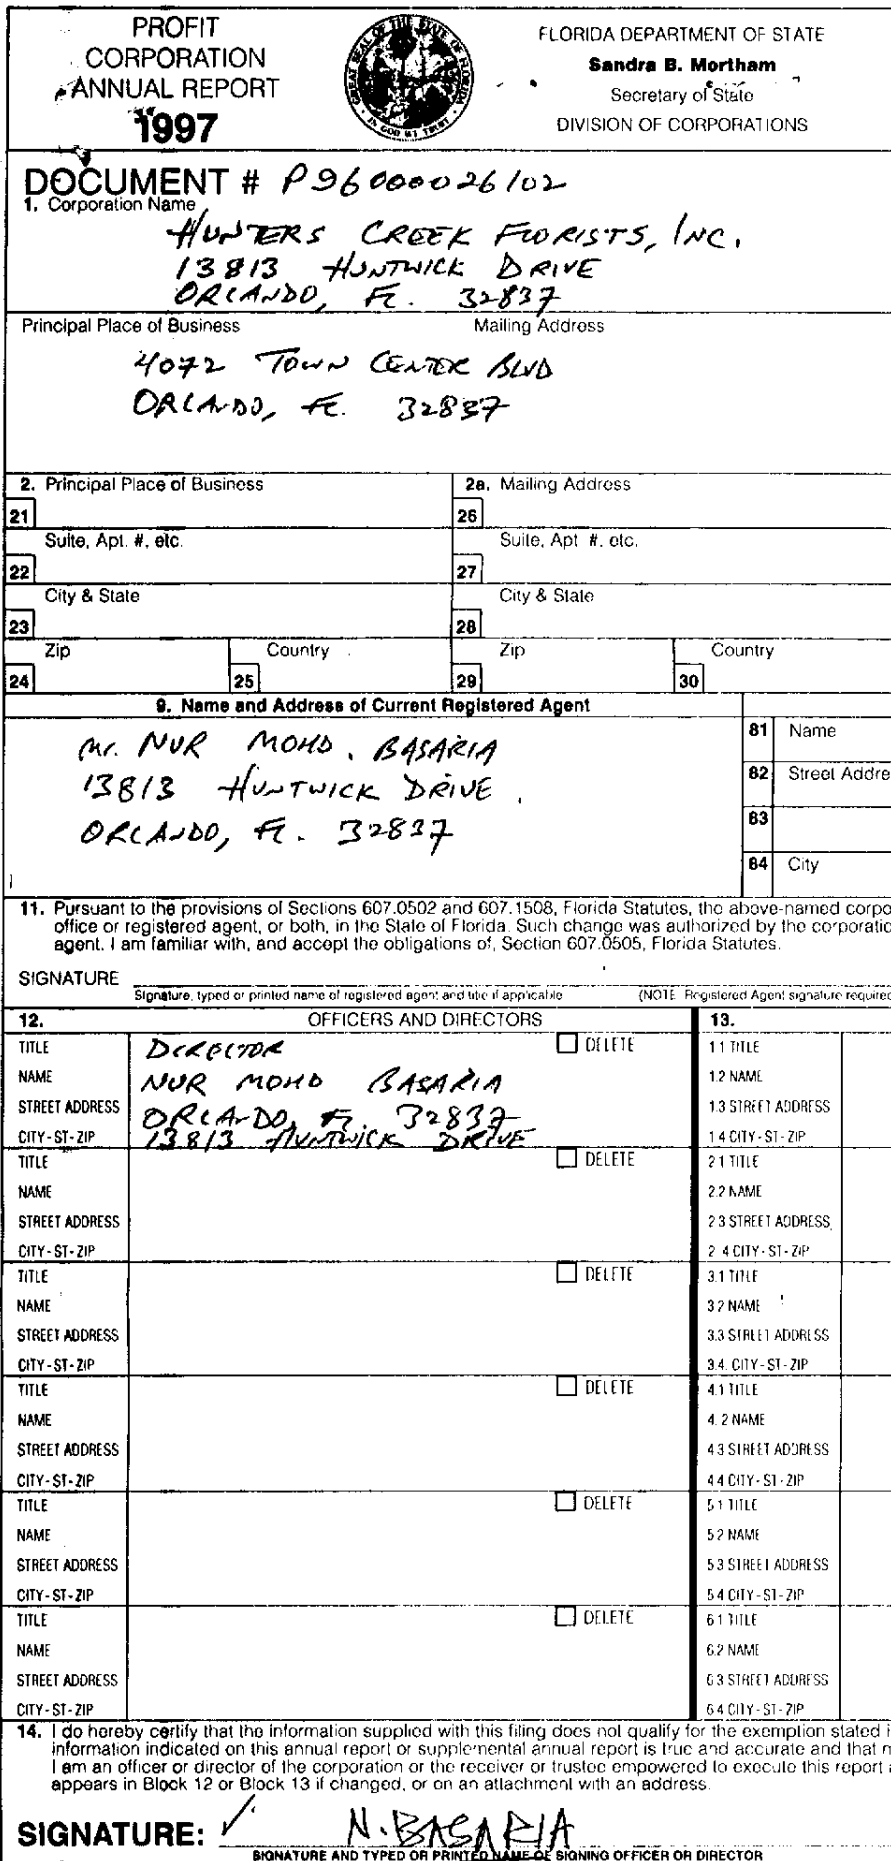 PROFIT
CORPORATION
ANNUAL REPORT
1997
GREAT SEAL OF THE STATE OF FLORIDA
IN GOD WE TRUST
FLORIDA DEPARTMENT OF STATE
Sandra B. Mortham
Secretary of State
DIVISION OF CORPORATIONS
DOCUMENT # P96000026102
1. Corporation Name
HUNTERS CREEK FLORISTS, INC.
13813 HUNTWICK DRIVE
ORLANDO, FL. 32837
Principal Place of Business Mailing Address
4072 TOWN CENTER BLVD
ORLANDO, FL. 32837
2. Principal Place of Business 2a. Mailing Address
21 26
Suite, Apt. #, etc. Suite, Apt #, etc.
22 27
City & State City & State
23 28
Zip Country Zip Country
24 25 29 30
9. Name and Address of Current Registered Agent
Mr. NUR MOHD. BASARIA
13813 HUNTWICK DRIVE
ORLANDO, FL. 32837
81 Name
82 Street Addre
83
84 City
11. Pursuant to the provisions of Sections 607.0502 and 607.1508, Florida Statutes, the above-named corpo
office or registered agent, or both, in the State of Florida. Such change was authorized by the corporatio
agent. I am familiar with, and accept the obligations of, Section 607.0505, Florida Statutes.
SIGNATURE
Signature, typed or printed name of registered agent and title if applicable (NOTE Registered Agent signature required
12. OFFICERS AND DIRECTORS 13.
TITLE DIRECTOR DELETE 1 1 TITLE
NAME NUR MOHD BASARIA 1.2 NAME
STREET ADDRESS ORLANDO, FL 32837 1.3 STREET ADDRESS
CITY-ST-ZIP 13813 HUNTWICK DRIVE 1 4 CITY-ST-ZIP
TITLE DELETE 2 1 TITLE
NAME 2.2 NAME
STREET ADDRESS 2 3 STREET ADDRESS
CITY-ST-ZIP 2 4 CITY-ST-ZIP
TITLE DELETE 3.1 TITLE
NAME 3 2 NAME
STREET ADDRESS 3.3 STREET ADDRESS
CITY-ST-ZIP 3.4. CITY-ST-ZIP
TITLE DELETE 4.1 TITLE
NAME 4. 2 NAME
STREET ADDRESS 4 3 STREET ADDRESS
CITY-ST-ZIP 4 4 CITY-ST-ZIP
TITLE DELETE 5 1 TITLE
NAME 5 2 NAME
STREET ADDRESS 5 3 STREET ADDRESS
CITY-ST-ZIP 5 4 CITY-ST-ZIP
TITLE DELETE 6 1 TITLE
NAME 6.2 NAME
STREET ADDRESS 6 3 STREET ADDRESS
CITY-ST-ZIP 6 4 CITY-ST-ZIP
14. I do hereby certify that the information supplied with this filing does not qualify for the exemption stated i
information indicated on this annual report or supplemental annual report is true and accurate and that m
I am an officer or director of the corporation or the receiver or trustee empowered to execute this report a
appears in Block 12 or Block 13 if changed, or on an attachment with an address.
SIGNATURE: N. BASARIA
SIGNATURE AND TYPED OR PRINTED NAME OF SIGNING OFFICER OR DIRECTOR